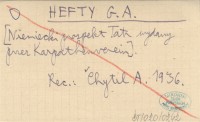 HEFTY G. A.
[Niemiecki prospekt Tatr wydany
przez Karpathenverein].
Rec.: Chytil A. 1936.